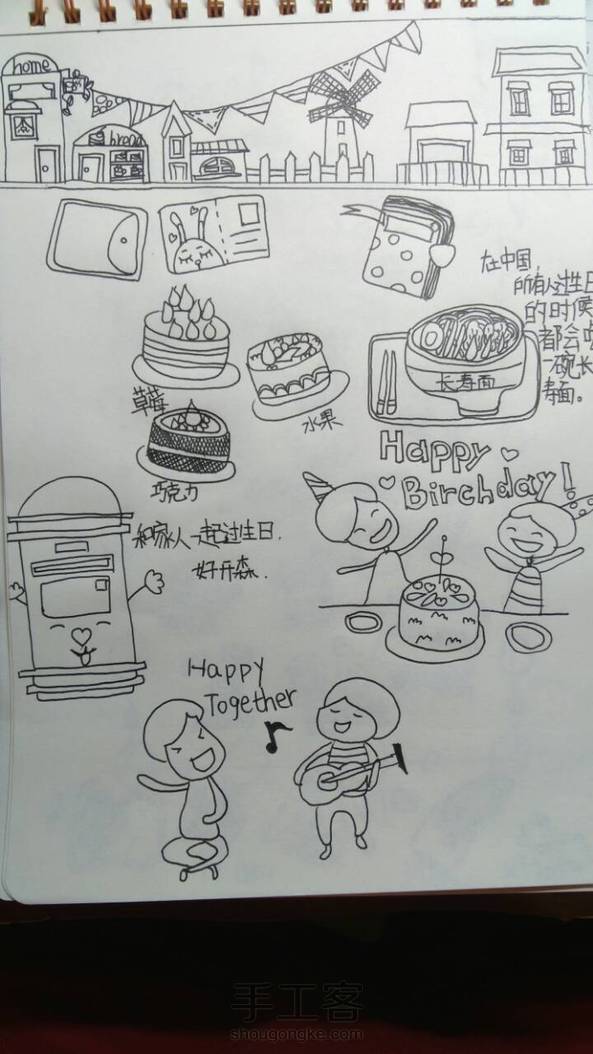 home
bread
在中国,
所有人过生日
的时候
都会吃
一碗长
寿面。
长寿面
草莓
水果
巧克力
Happy
Birchday!
和家人一起过生日.
好开森.
Happy
Together
手工客
shougongke.com